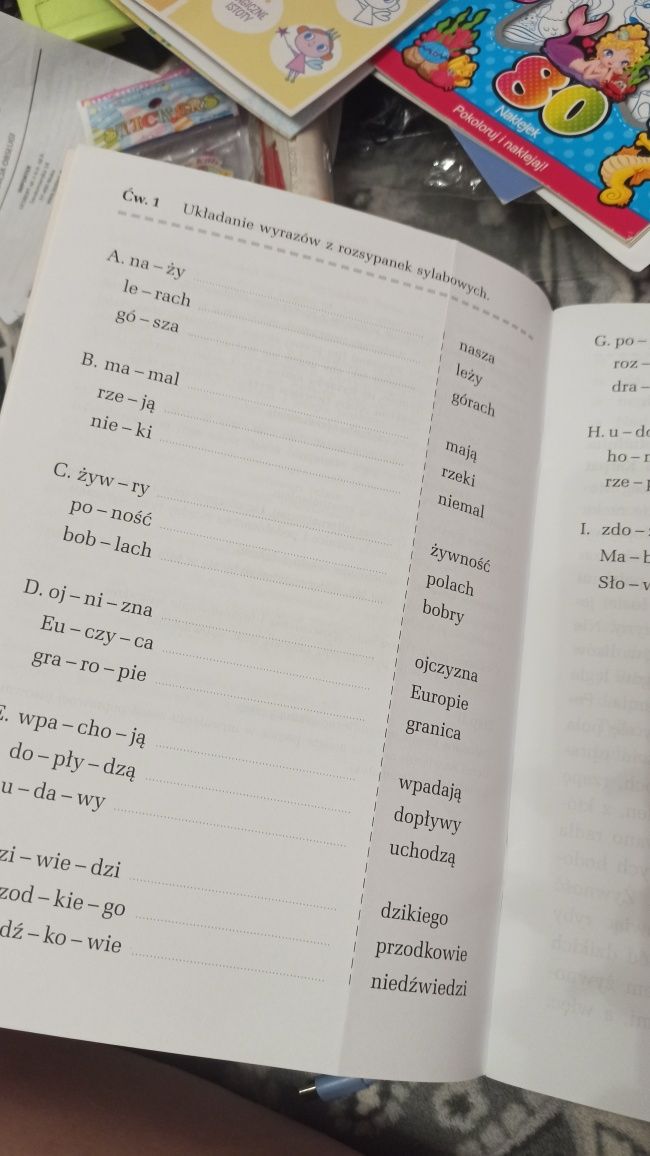 MAGICZNE
ISTOTY
80
Naklejek
Pokoloruj i naklejaj!
Ćw. 1 Układanie wyrazów z rozsypanek sylabowych.
A. na – ży
le – rach
gó – sza
nasza
leży
górach
B. ma – mal
rze – ją
nie – ki
mają
rzeki
niemal
C. żyw – ry
po – ność
bob – lach
żywność
polach
bobry
D. oj – ni – zna
Eu – czy – ca
gra – ro – pie
ojczyzna
Europie
granica
E. wpa – cho – ją
do – pły – dzą
u – da – wy
wpadają
dopływy
uchodzą
zi – wie – dzi
zod – kie – go
dź – ko – wie
dzikiego
przodkowie
niedźwiedzi
G. po –
roz –
dra –
H. u – do
ho –
rze –
I. zdo –
Ma –
Sło –